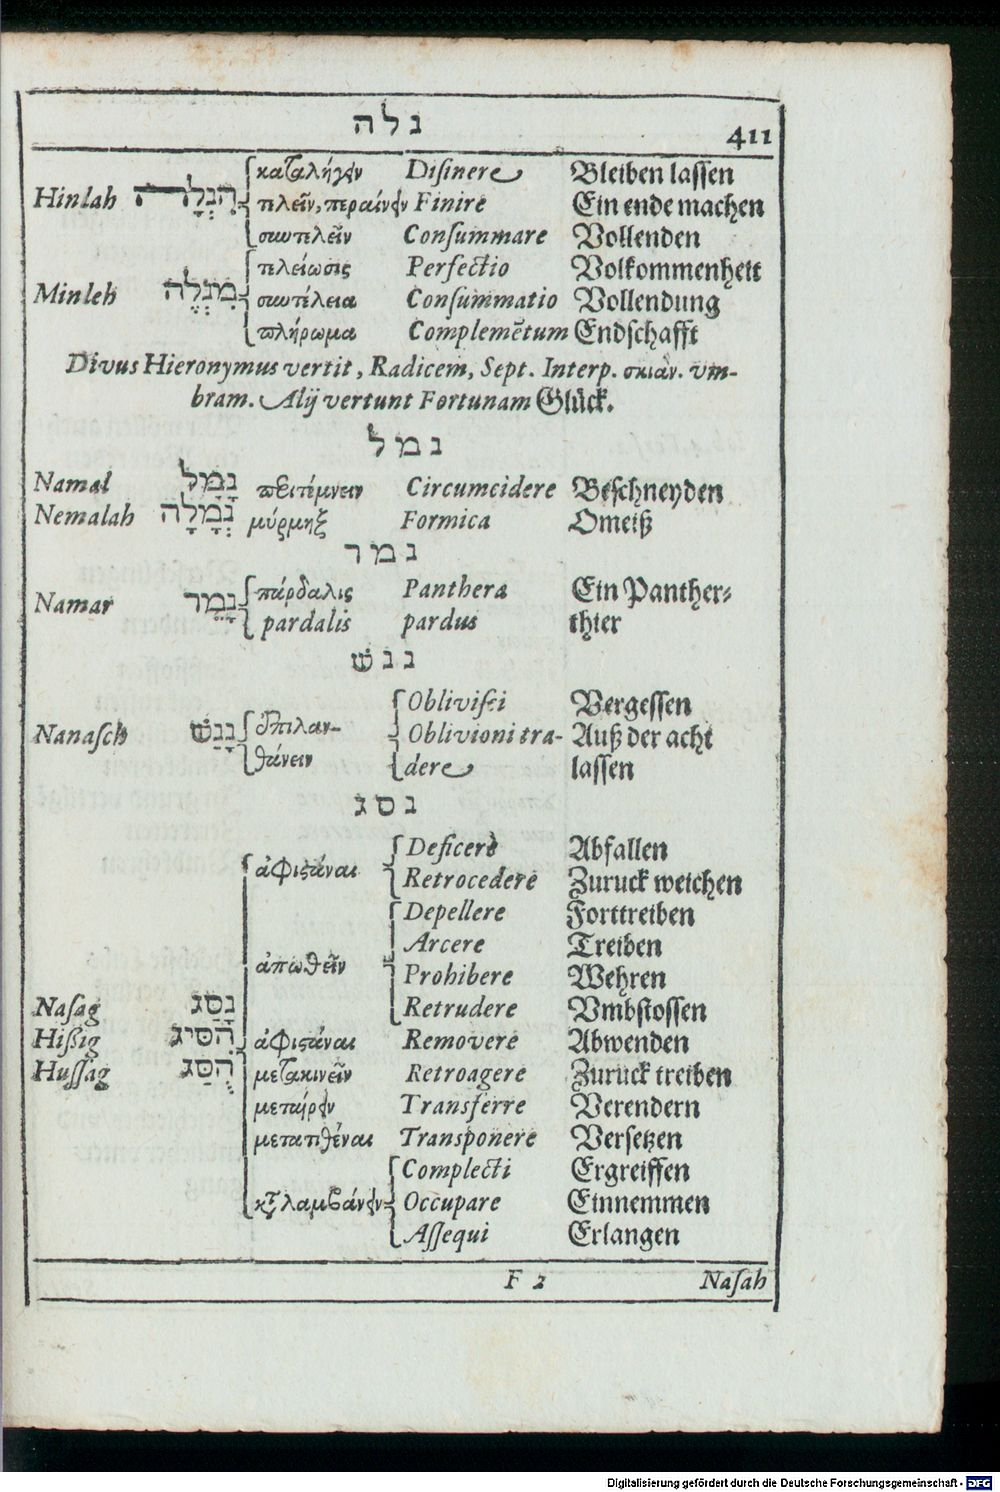 נלה
411
καταλήγειν Disinere Bleiben lassen
Hinlah הִנְלָה πλεῖν, περαίνειν Finire Ein ende machen
συντελεῖν Consummare Vollenden
τελείωσις Perfectio Volkommenheit
Minleh מִנְלֶה συντέλεια Consummatio Vollendung
πλήρωμα Complemẽtum Endschafft
Divus Hieronymus vertit, Radicem, Sept. Interp. σκιὰν. vm-
bram. Alij vertunt Fortunam Glück.
נמל
Namal נָמַל περιτέμνειν Circumcidere Beschneyden
Nemalah נְמָלָה μύρμηξ Formica Omeiß
נמר
Namar נָמֵר πάρδαλις Panthera Ein Panther-
pardalis pardus thier
ננש
Oblivisci Vergessen
Nanasch נָנַשׁ ἐπιλαν- Oblivioni tra- Auß der acht
θάνειν dere lassen
נסג
Deficere Abfallen
ἀφιστάναι Retrocedere Zuruck weichen
Depellere Forttreiben
Arcere Treiben
ἀπωθεῖν Prohibere Wehren
Nasag נָסַג Retrudere Vmbstossen
Hißig הִסִּיג ἀφιστάναι Removere Abwenden
Hussag הֻסַּג μετακινεῖν Retroagere Zuruck treiben
μεταίρειν Transferre Verendern
μετατιθέναι Transponere Versetzen
Complecti Ergreiffen
καταλαμβάνειν Occupare Einnemmen
Assequi Erlangen
F 2 Nasah
Digitalisierung gefördert durch die Deutsche Forschungsgemeinschaft - DFG